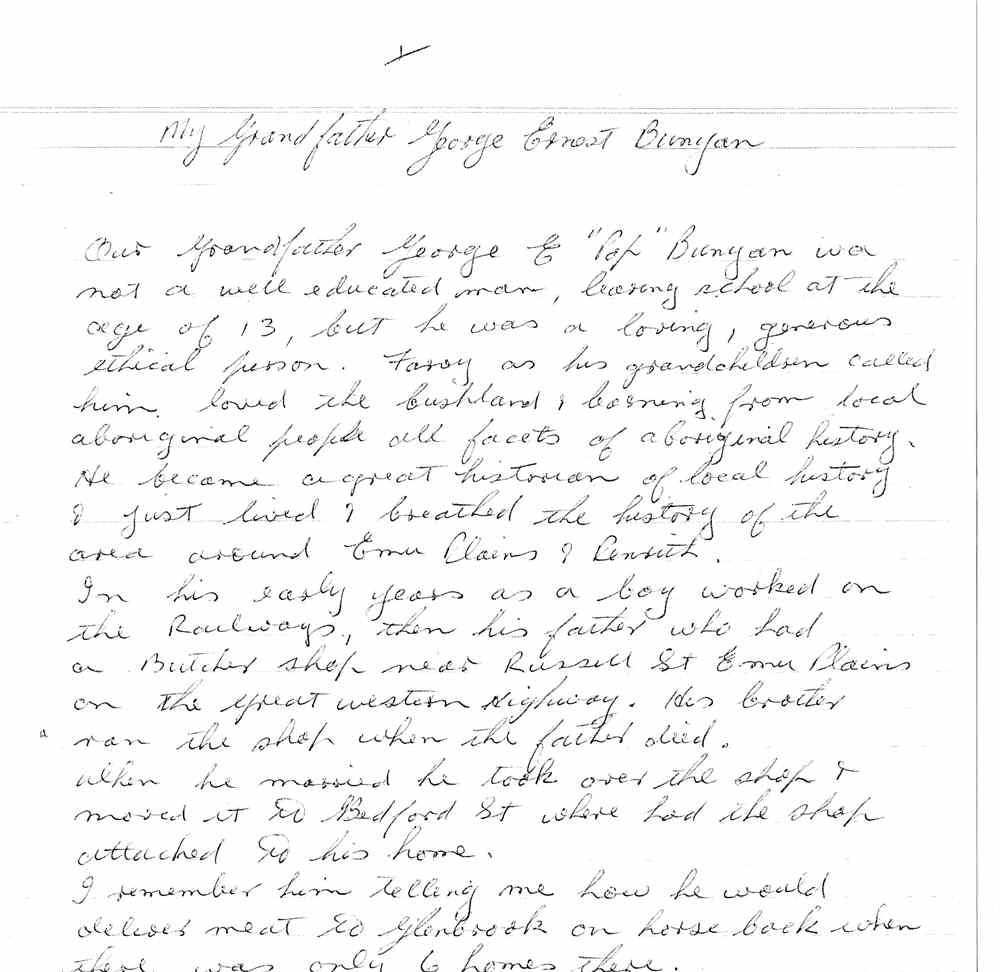 My Grandfather George Ernest Bunyan
Our Grandfather George E "Pop" Bunyan wa
not a well educated man, leaving school at the
age of 13, but he was a loving, generous
ethical person. as his grandchildren called
him. loved the bushland & learning from local
aboriginal people all facets of aboriginal history.
He became a great historian of local history
& just lived & breathed the history of the
area around Emu Plains & Penrith.
In his early years as a boy worked on
the Railways, then his father who had
a Butcher shop near Russell St Emu Plains
on the great western Highway. His brother
ran the shop when the father died.
When he married he took over the shop &
moved it to Bedford St where had the shop
attached to his home.
I remember him telling me how he would
deliver meat to Glenbrook on horse back when
there was only 6 homes there.